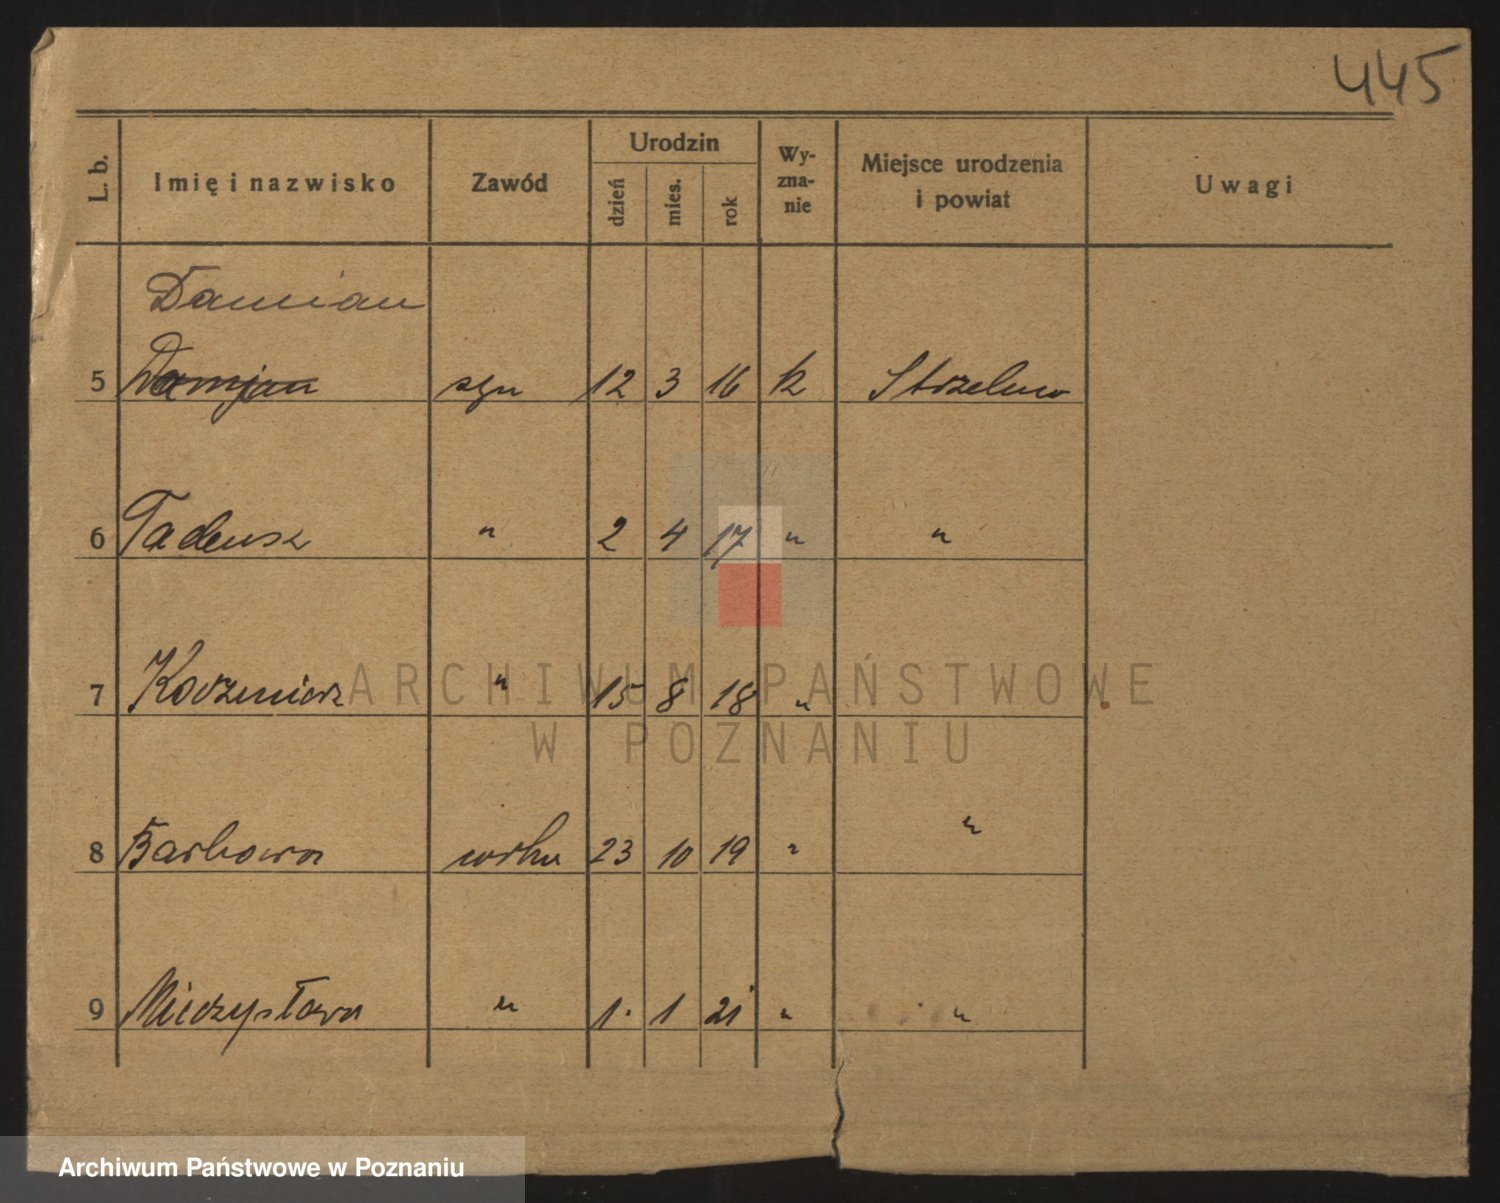 445
L. b. Imię i nazwisko Zawód Urodzin dzień mies. rok Wy-zna-nie Miejsce urodzenia i powiat Uwagi
Damian
5 Damjan syn 12 3 16 k Strzelno
6 Tadeusz " 2 4 17 " "
7 Kazimierz " 15 8 18 "
8 Barbara 23 10 19 " "
9 Mieczysława " 1. 1 21 " "
ARCHIWUM PAŃSTWOWE
W POZNANIU
Archiwum Państwowe w Poznaniu